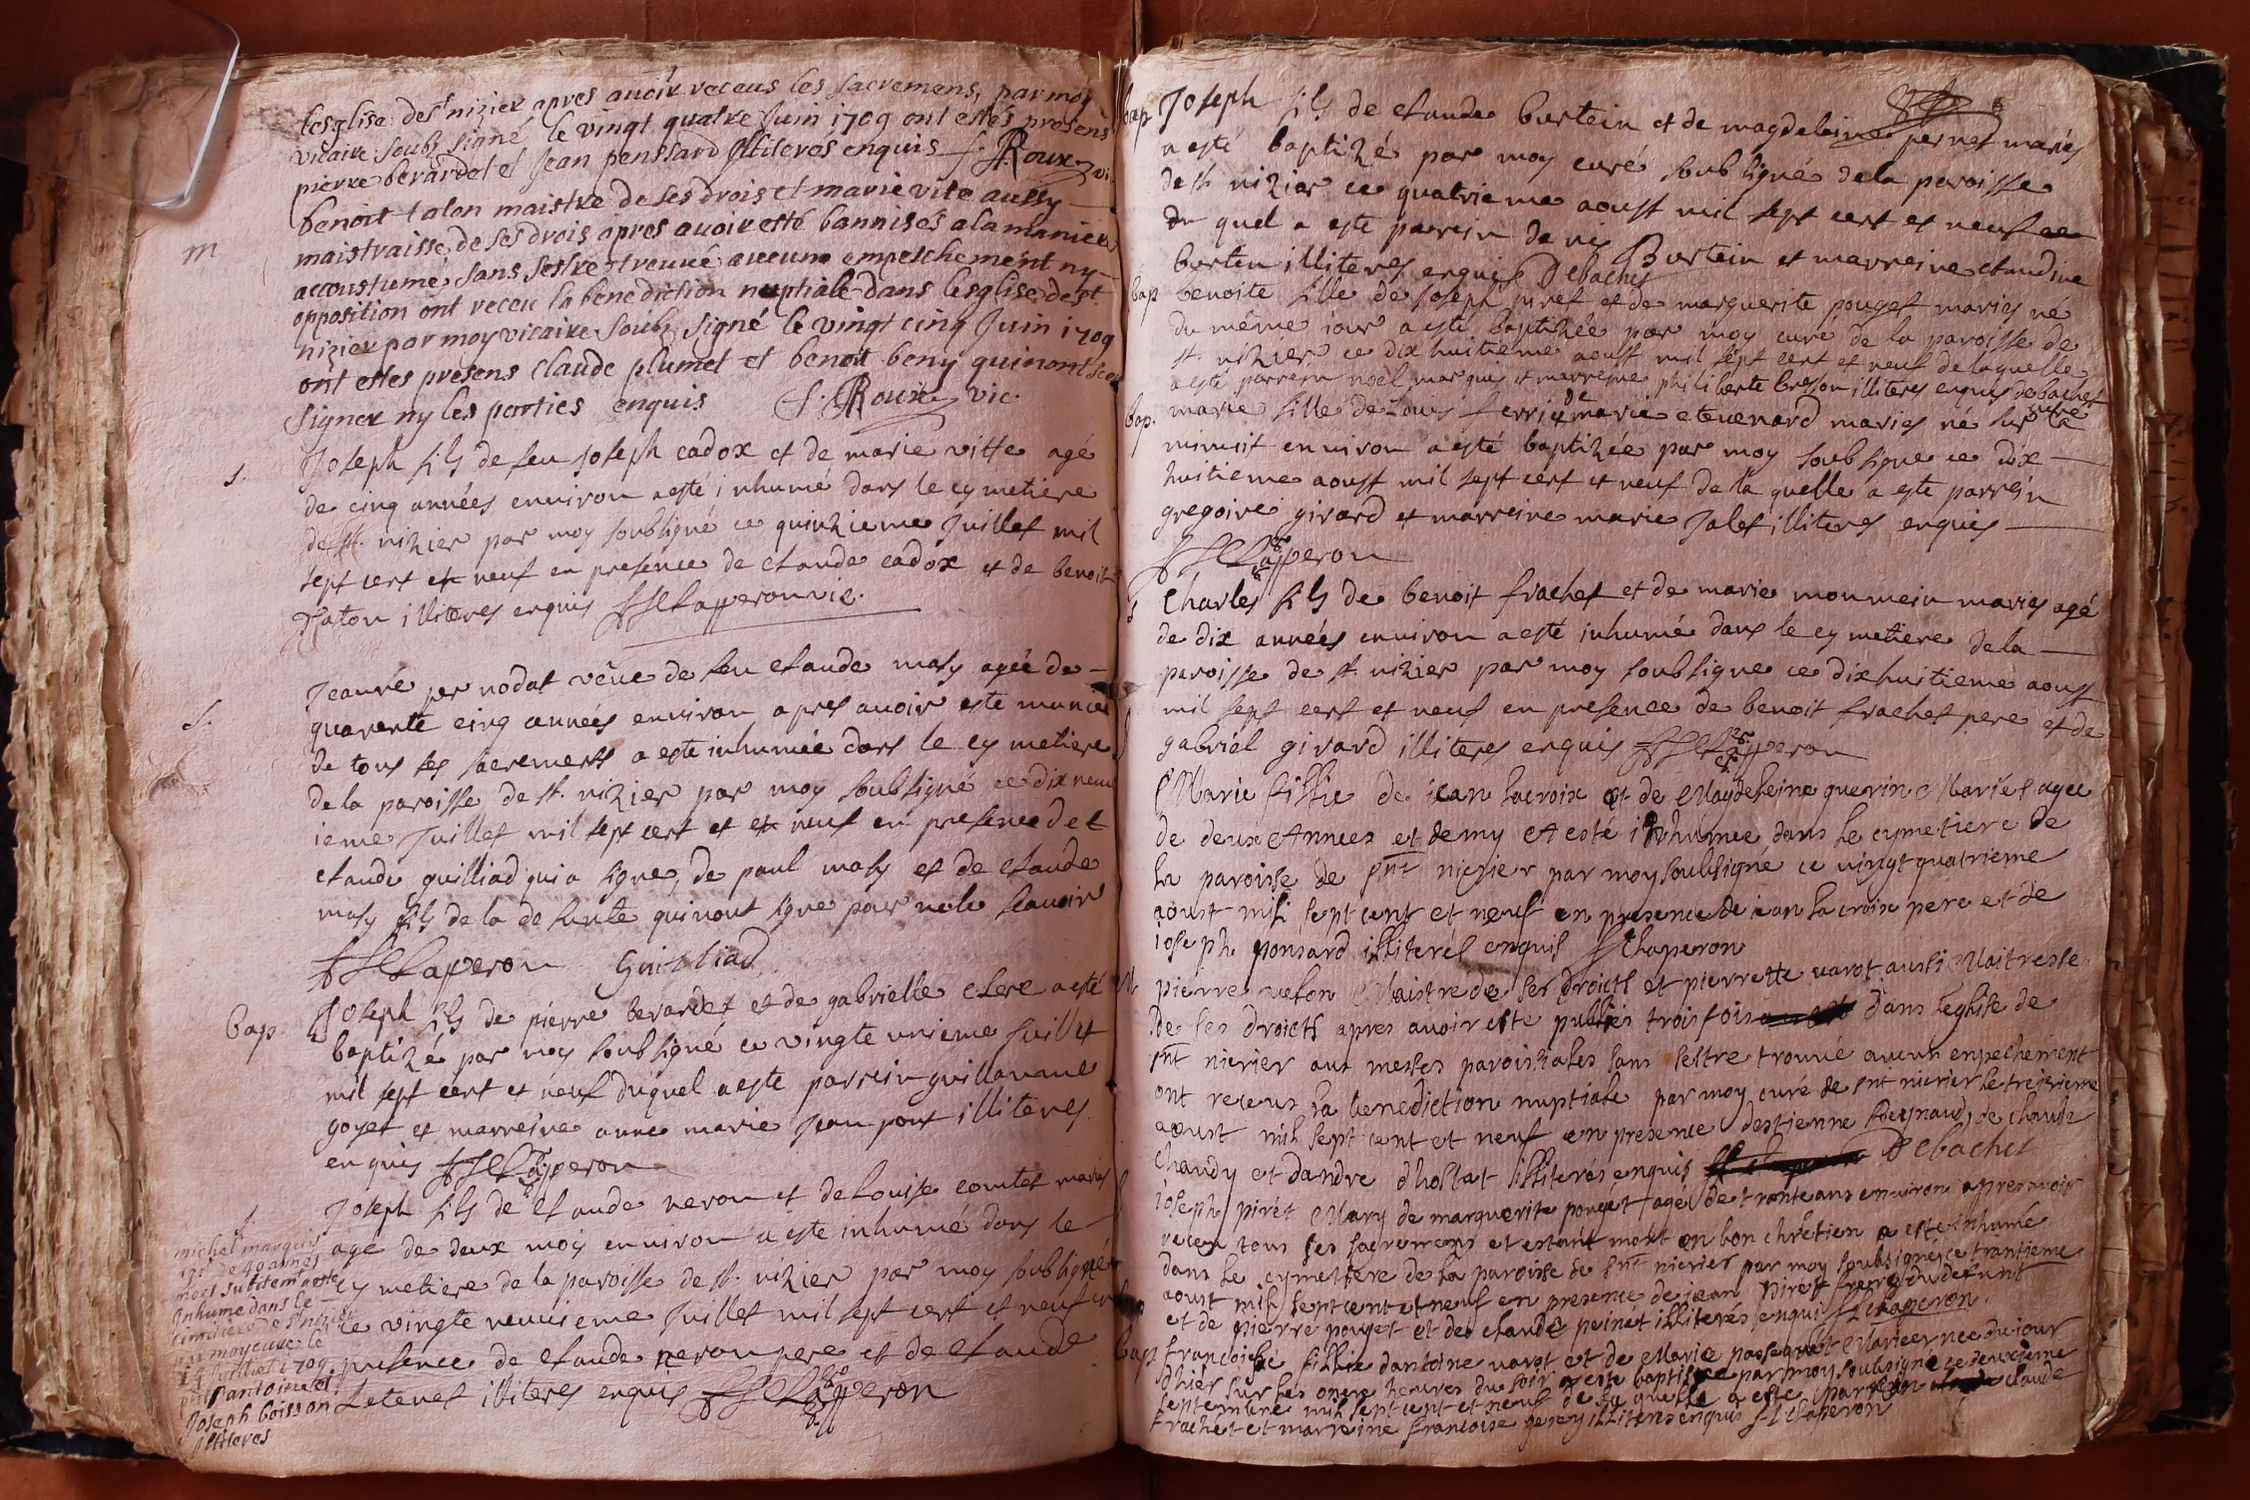 lesglise de st nizier apres auoir receus les sacremens, par moy
vicaire soubz signé le vingt quatre Juin 1709 ont estés presens
pierre berardet et Jean penssard Jlliterés enquis f. Roux vic
m
benoit talon maistre de ses drois et marie vite aussy
maistraisse de ses drois apres auoir esté bannisés ala maniere
accoustumé sans sestre treuué aucune empeschement ny
opposition ont receu la benediction nuptiale dans lesglise de st
nizier par moy vicaire soubz signé le vingt cinq Juin 1709
ont estes presens claude plumet et benoit beny qui nont sceu
signer ny les parties enquis f. Roux vic.
s.
Joseph fils de feu Joseph cadox et de marie vitte agé
de cinq années enuiron a esté inhumé dans le cymetiere
de st. nizier par moy soubsigné ce quinzieme Juillet mil
sept cent et neuf en presence de claude cadox et de benoit
illiteres enquis Chapperon vic.
s.
Jeanne per nodat veüe de feu claude maly agée de
quarente cinq années enuiron apres auoir este munie
de tous ses sacrements a este inhumée dans le cymetiere
de la paroisse de st. nizier par moy soubsigné ce dix neuu
ieme Juillet mil sept cent et et neuf en presence de
claude guilliad qui a signe, de paul maly et de claude
maly fils de la defunte qui nont signe pour ne le scauoir
Chapperon Guilliad
bap.
Joseph fils de pierre berardet et de gabrielle clere a esté
baptizé par moy soubsigné ce vingte unieme Juillet
mil sept cent et neuf duquel a este parrein guillaume
goyet et marreine anne marie Jean pont illiteres
enquis Chapperon
s.
Joseph fils de claude neron et de Louise comtet mariés
agé de deux moys enuiron a este inhumé dans le
cymetiere de la paroisse de st. nizier par moy soubsigné
ce vingte neuuieme Juillet mil sept cent et neuf en
presence de claude neron pere et de claude
Letenet illiteres enquis Chapperon
michel marquis
de 40 annés
mort subitemt a esté
inhumé dans le
cimitiere de st nizier
par moy curé le
Juillet 1709
antoine et
Joseph boisson
Jlliteres
bap
Joseph fils de claude burtein et de magdeleine pernet mariés
a esté baptizé par moy curé soubsigné de la paroisse
de st. nizier ce quatrieme aoust mil sept cent et neuf
du quel a este parrein denis Burtein et marreine claudine
burtein illiteres enquis Debachet
bap
benoite fille de Joseph piret et de marguerite pouget mariés né
du même iour a esté baptizée par moy curé de la paroisse de
st. nizier ce dix huitieme aoust mil sept cent et neuf de laquelle
a esté parrein noël marquis et marreine philiberte breson illiteres enquis debachet
curé
bap.
marie fille de Louis ferri et de marie cteuenard mariés né sur la
minuit enuiron a esté baptizée par moy soubsigné ce dix
huitieme aoust mil sept cent et neuf de la quelle a este parrein
gregoire girard et marreine marie Jalet illiteres enquis
Chapperon
s
Charles fils de benoit frachet et de marie monmein mariés agé
de dix années enuiron a esté inhumé dans le cymetiere de la
paroisse de st. nizier par moy soubsigne ce dixhuitieme aoust
mil sept cent et neuf en presence de benoit frachet pere et de
gabriél girard illiteres enquis Chapperon
Marie fillie de iean lacroix et de Magdeleine guerin Mariés agee
de deux Annees et demy A esté inhumee dans le cymetiere de
la paroise de snt nicsier par moy soubsigne ce uingt quatrieme
aoust mil sept cent et neuf en presence de iean lacroix pere et de
ioseph ponsard illiterés enquis Chaperon
M
pierre uelon Maistre de ses droicts et pierrette uarot aussi Maitresse
de ses droicts apres auoir este publies trois fois dans leglise de
snt nicsier aux messes paroissiales sans sestre trouué aucun enpechement
ont receus la benediction nuptiale par moy curé de snt nicsier le treisieme
aoust mil sept cent et neuf en presence destienne Reynaud, de claude
chandy et dandre dhostat illiterés enquis Debachet
ioseph pirét Mary de marguerite pouget agé de trante ans enuiron apres auoir
receu tous ses sacremens et estant mort en bon chretien a este inhumé
dans le cymettere de la paroise de snt nicsier par moy soubsigné ce trantieme
aoust mil sept cent et neuf en presence de iean Piret frere du defunt
et de pierre pouget et de claude peinét illiterés enquis Chaperon.
bap
francoise fillie dantoine uarot et de Marie passequet Mariees nee du iour
dhier sur les onze heures du soir a este baptisee par moy soubsigne ce deuxieme
septembre mil sept cent et neuf de la quelle a este parrein claude
frachet et marreine francoise perey illiteres enquis Chaperon